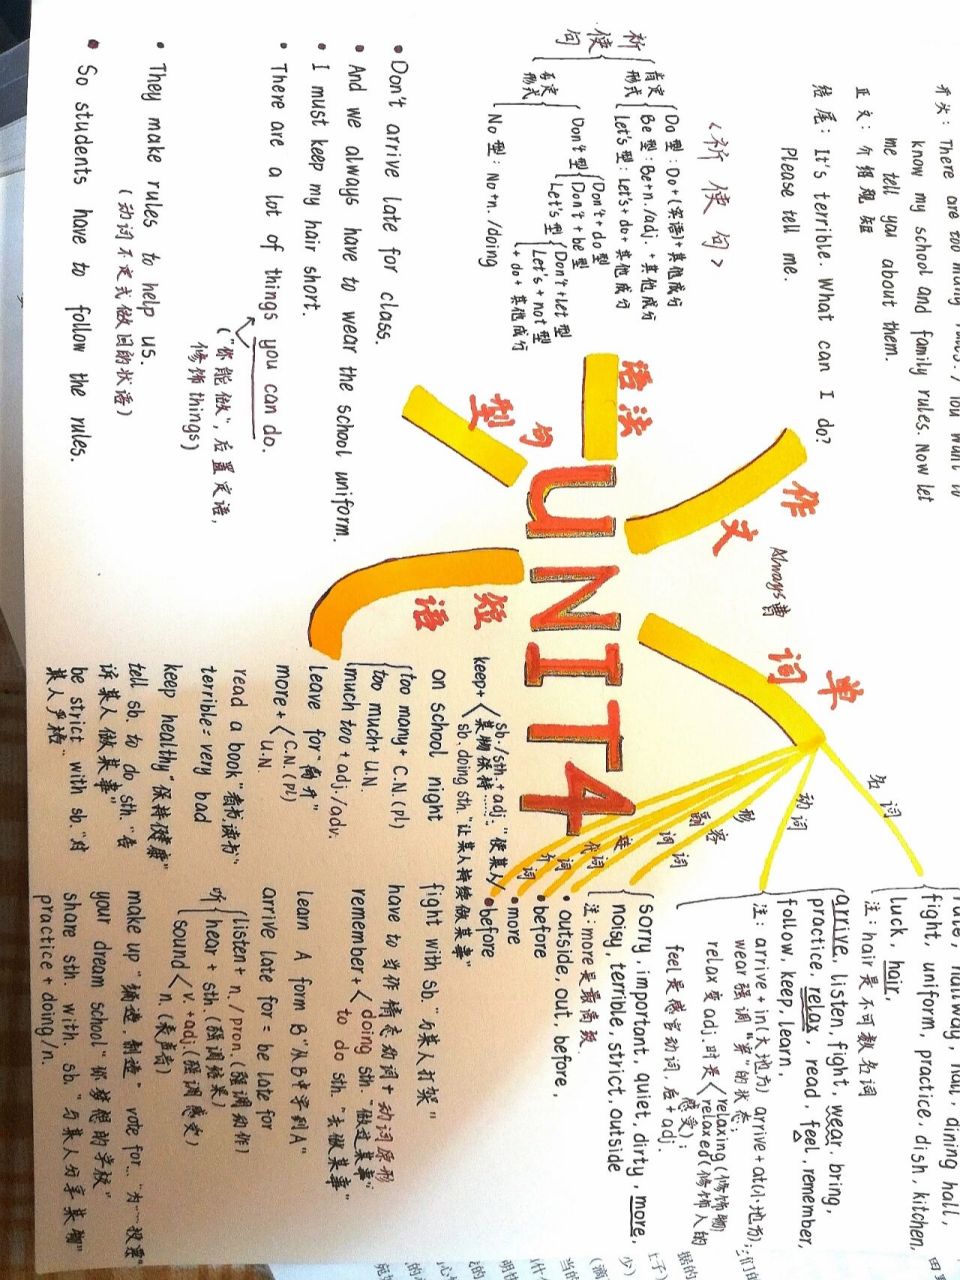 开头: There are too many rules. / You want to
know my school and family rules. Now let
me tell you about them.
正文: 介绍规矩
结尾: It's terrible. What can I do?
Please tell me.
<祈使句>
祈使句
肯定形式
Do型: Do+(宾语)+其他成分
Be型: Be+n./adj.+其他成分
Let's型: Let's+do+其他成分
否定形式
Don't型
Don't+do型
Don't+be型
Let's型
Don't+let型
Let's+not型
+do+其他成分
No型: No+n./doing
语法
句型
• Don't arrive late for class.
• And we always have to wear the school uniform.
• I must keep my hair short.
• There are a lot of things you can do.
("你能做", 后置定语,
修饰things)
• They make rules to help us.
(动词不定式做目的状语)
• So students have to follow the rules.
作文
UNIT4
Always曹
单词
名词
hallway, hall, dining hall,
fight, uniform, practice, dish, kitchen,
luck, hair,
注: hair是不可数名词
动词
arrive, listen, fight, wear, bring,
practice, relax, read, feel, remember,
follow, keep, learn.
注: arrive+in(大地方) arrive+at(小地方);
wear强调"穿"的状态;
relax变adj.时是
relaxing(修饰物)
relaxed(修饰人的
感受);
feel是感官动词, 后+adj.
形容词
sorry, important, quiet, dirty, more,
noisy, terrible, strict, outside
注: more是最高级
副词
• outside, out, before,
连词
• before
代词
• more
介词
• before
短语
keep+
sb./sth.+adj.: "使某人/
某物保持……"
sb. doing sth. "让某人持续做某事"
on school night
too many+C.N.(pl)
too much+U.N.
much too+adj./adv.
leave for "离开"
more+
C.N.(pl)
U.N.
read a book "看书读书"
terrible=very bad
keep healthy "保持健康"
tell sb. to do sth. "告
诉某人做某事"
be strict with sb. "对
某人严格"
fight with sb. "与某人打架"
have to 为作情态动词+动词原形
remember+
doing sth. "做过某事"
to do sth. "去做某事"
learn A form B "从B中学到A"
arrive late for=be late for
听
listen+n./pron.(强调动作)
hear+sth.(强调结果)
sound
v.+adj.(强调感受)
n.(表声音)
make up "编造, 制造" vote for… "为……投票"
your dream school "你梦想的学校"
share sth. with. sb. "与某人分享某物"
practice+doing/n.